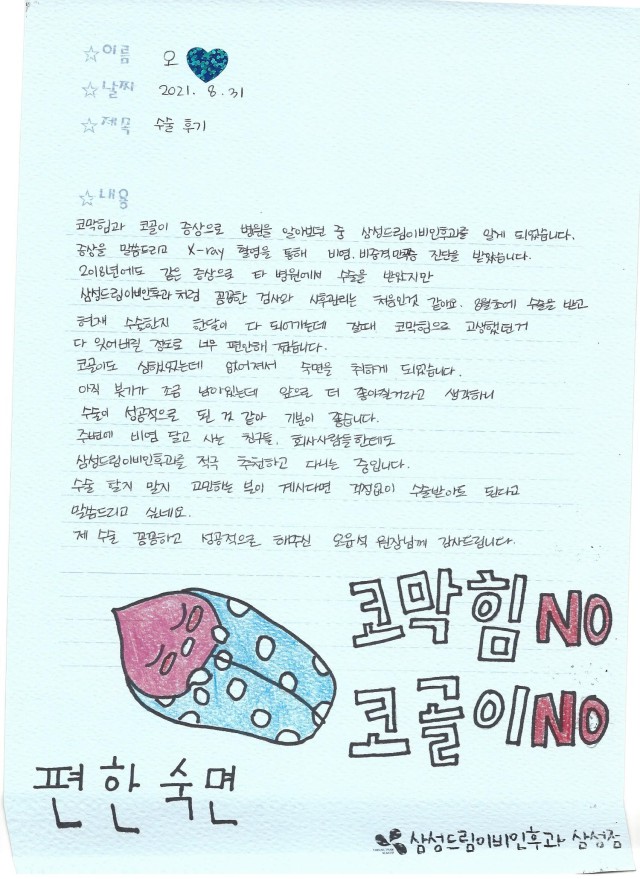 ☆이름 오
☆날짜 2021. 8. 31
☆제목 수술 후기
☆내용
코막힘과 코골이 증상으로 병원을 알아보던 중 삼성드림이비인후과를 알게 되었습니다.
증상을 말씀드리고 X-ray 촬영을 통해 비염, 비중격만곡증 진단을 받았습니다.
2018년에도 같은 증상으로 타 병원에서 수술을 받았지만
삼성드림이비인후과처럼 꼼꼼한 검사와 사후관리는 처음인것 같아요. 8월초에 수술을 받고
현재 수술한지 한달이 다 되어가는데 잘때 코막힘으로 고생했던거
다 잊어버릴 정도로 너무 편안해 졌습니다.
코골이도 심했었는데 없어져서 숙면을 취하게 되었습니다.
아직 붓기가 조금 남아있는데 앞으로 더 좋아질거라고 생각하니
수술이 성공적으로 된 것 같아 기분이 좋습니다.
주변에 비염 달고 사는 친구들, 회사사람들한테도
삼성드림이비인후과를 적극 추천하고 다니는 중입니다.
수술 할지 말지 고민하는 분이 계시다면 걱정없이 수술받아도 된다고
말씀드리고 싶네요.
제 수술 꼼꼼하고 성공적으로 해주신 오윤석 원장님께 감사드립니다.
코막힘 NO
코골이 NO
편한숙면
삼성드림이비인후과 삼성점